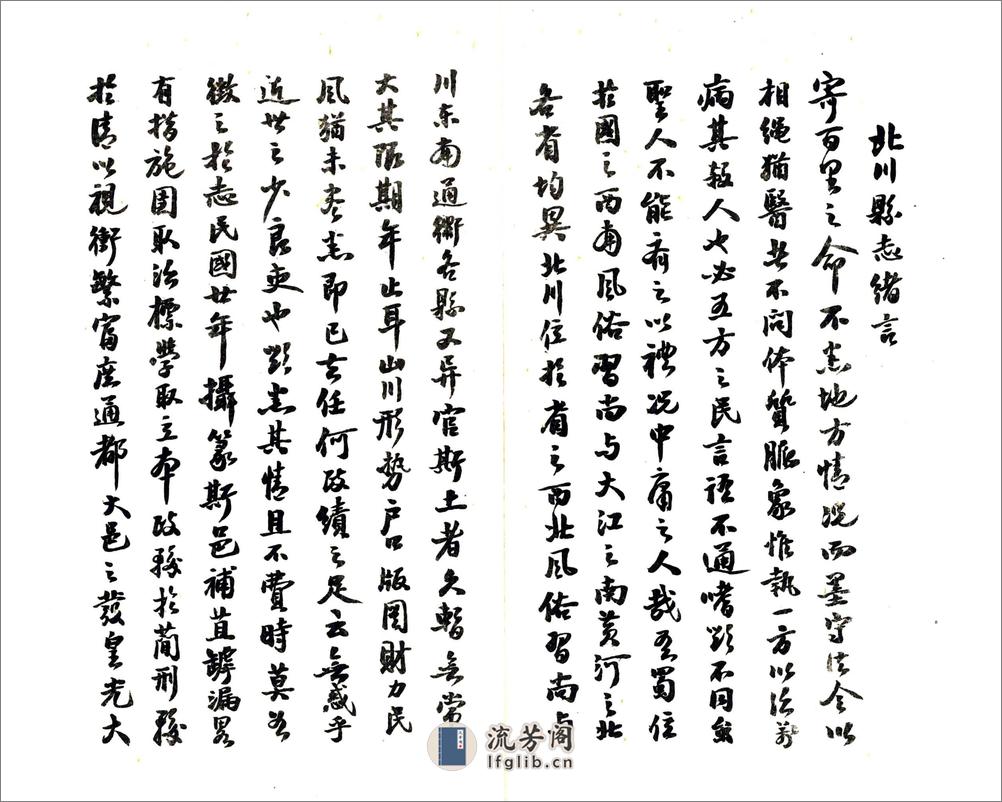 北川縣志緒言
寄百里之命不悉地方情况而墨守法令以
相繩猶醫者不问体質脈象惟執一方以治萬
病其殺人也必五方之民言語不通嗜欲不同虽
聖人不能齐之以禮况中庸之人哉吾蜀位
於國之西南風俗習尚与大江之南黄河之北
各省均異北川位於省之西北風俗習尚与
川东南通衢各縣又异官斯土者久暫無常
大其限期年止耳山川形势户口版图財力民
風猶未尽悉即已去任何政績之足云無惑乎
近世之少良吏也欲悉其情且不費時莫若
徵之於志民國廿年攝篆斯邑補苴罅漏畧
有措施固取治標學取立本政務於簡刑務
於清以視衝繁富庶通都大邑之發皇光大
流芳阁
lfglib.cn